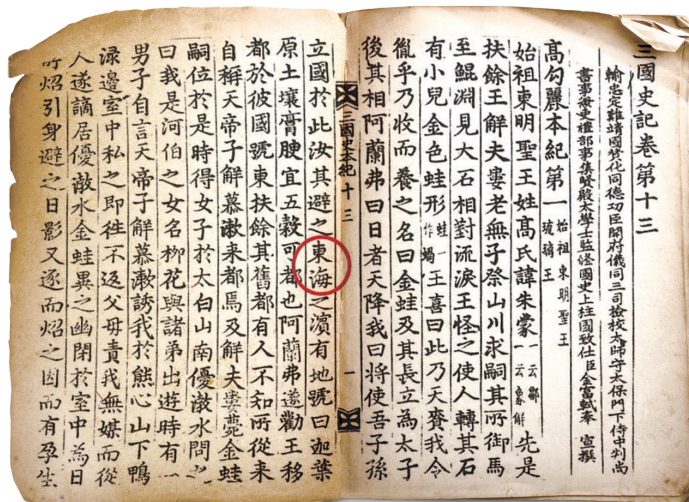 三國史記卷第十三
輸忠定難靖國贊化同德功臣開府儀同三司檢校太師守太保門下侍中判尚
書事兼吏禮部事集賢殿太學士監修國史上柱國致仕臣金富軾奉 宣撰
高句麗本紀第一 始祖東明聖王 琉璃王
始祖東明聖王姓高氏諱朱蒙 一云鄒 一云象解 先是
扶餘王解夫婁老無子祭山川求嗣其所御馬
至鯤淵見大石相對流淚王怪之使人轉其石
有小兒金色蛙形 蛙一作蝸 王喜曰此乃天賚我令
胤乎乃收而養之名曰金蛙及其長立為太子
後其相阿蘭弗曰日者天降我曰將使吾子孫
三國史本紀十三
一
立國於此汝其避之東海之濱有地號曰迦葉
原土壤膏腴宜五穀可都也阿蘭弗遂勸王移
都於彼國號東扶餘其舊都有人不知所從來
自稱天帝子解慕漱來都焉及解夫婁薨金蛙
嗣位於是時得女子於太白山南優渤水問之
曰我是河伯之女名柳花與諸弟出遊時有一
男子自言天帝子解慕漱誘我於熊心山下鴨
淥邊室中私之即往不返父母責我無媒而從
人遂謫居優渤水金蛙異之幽閉於室中為日
所炤引身避之日影又逐而炤之因而有孕生